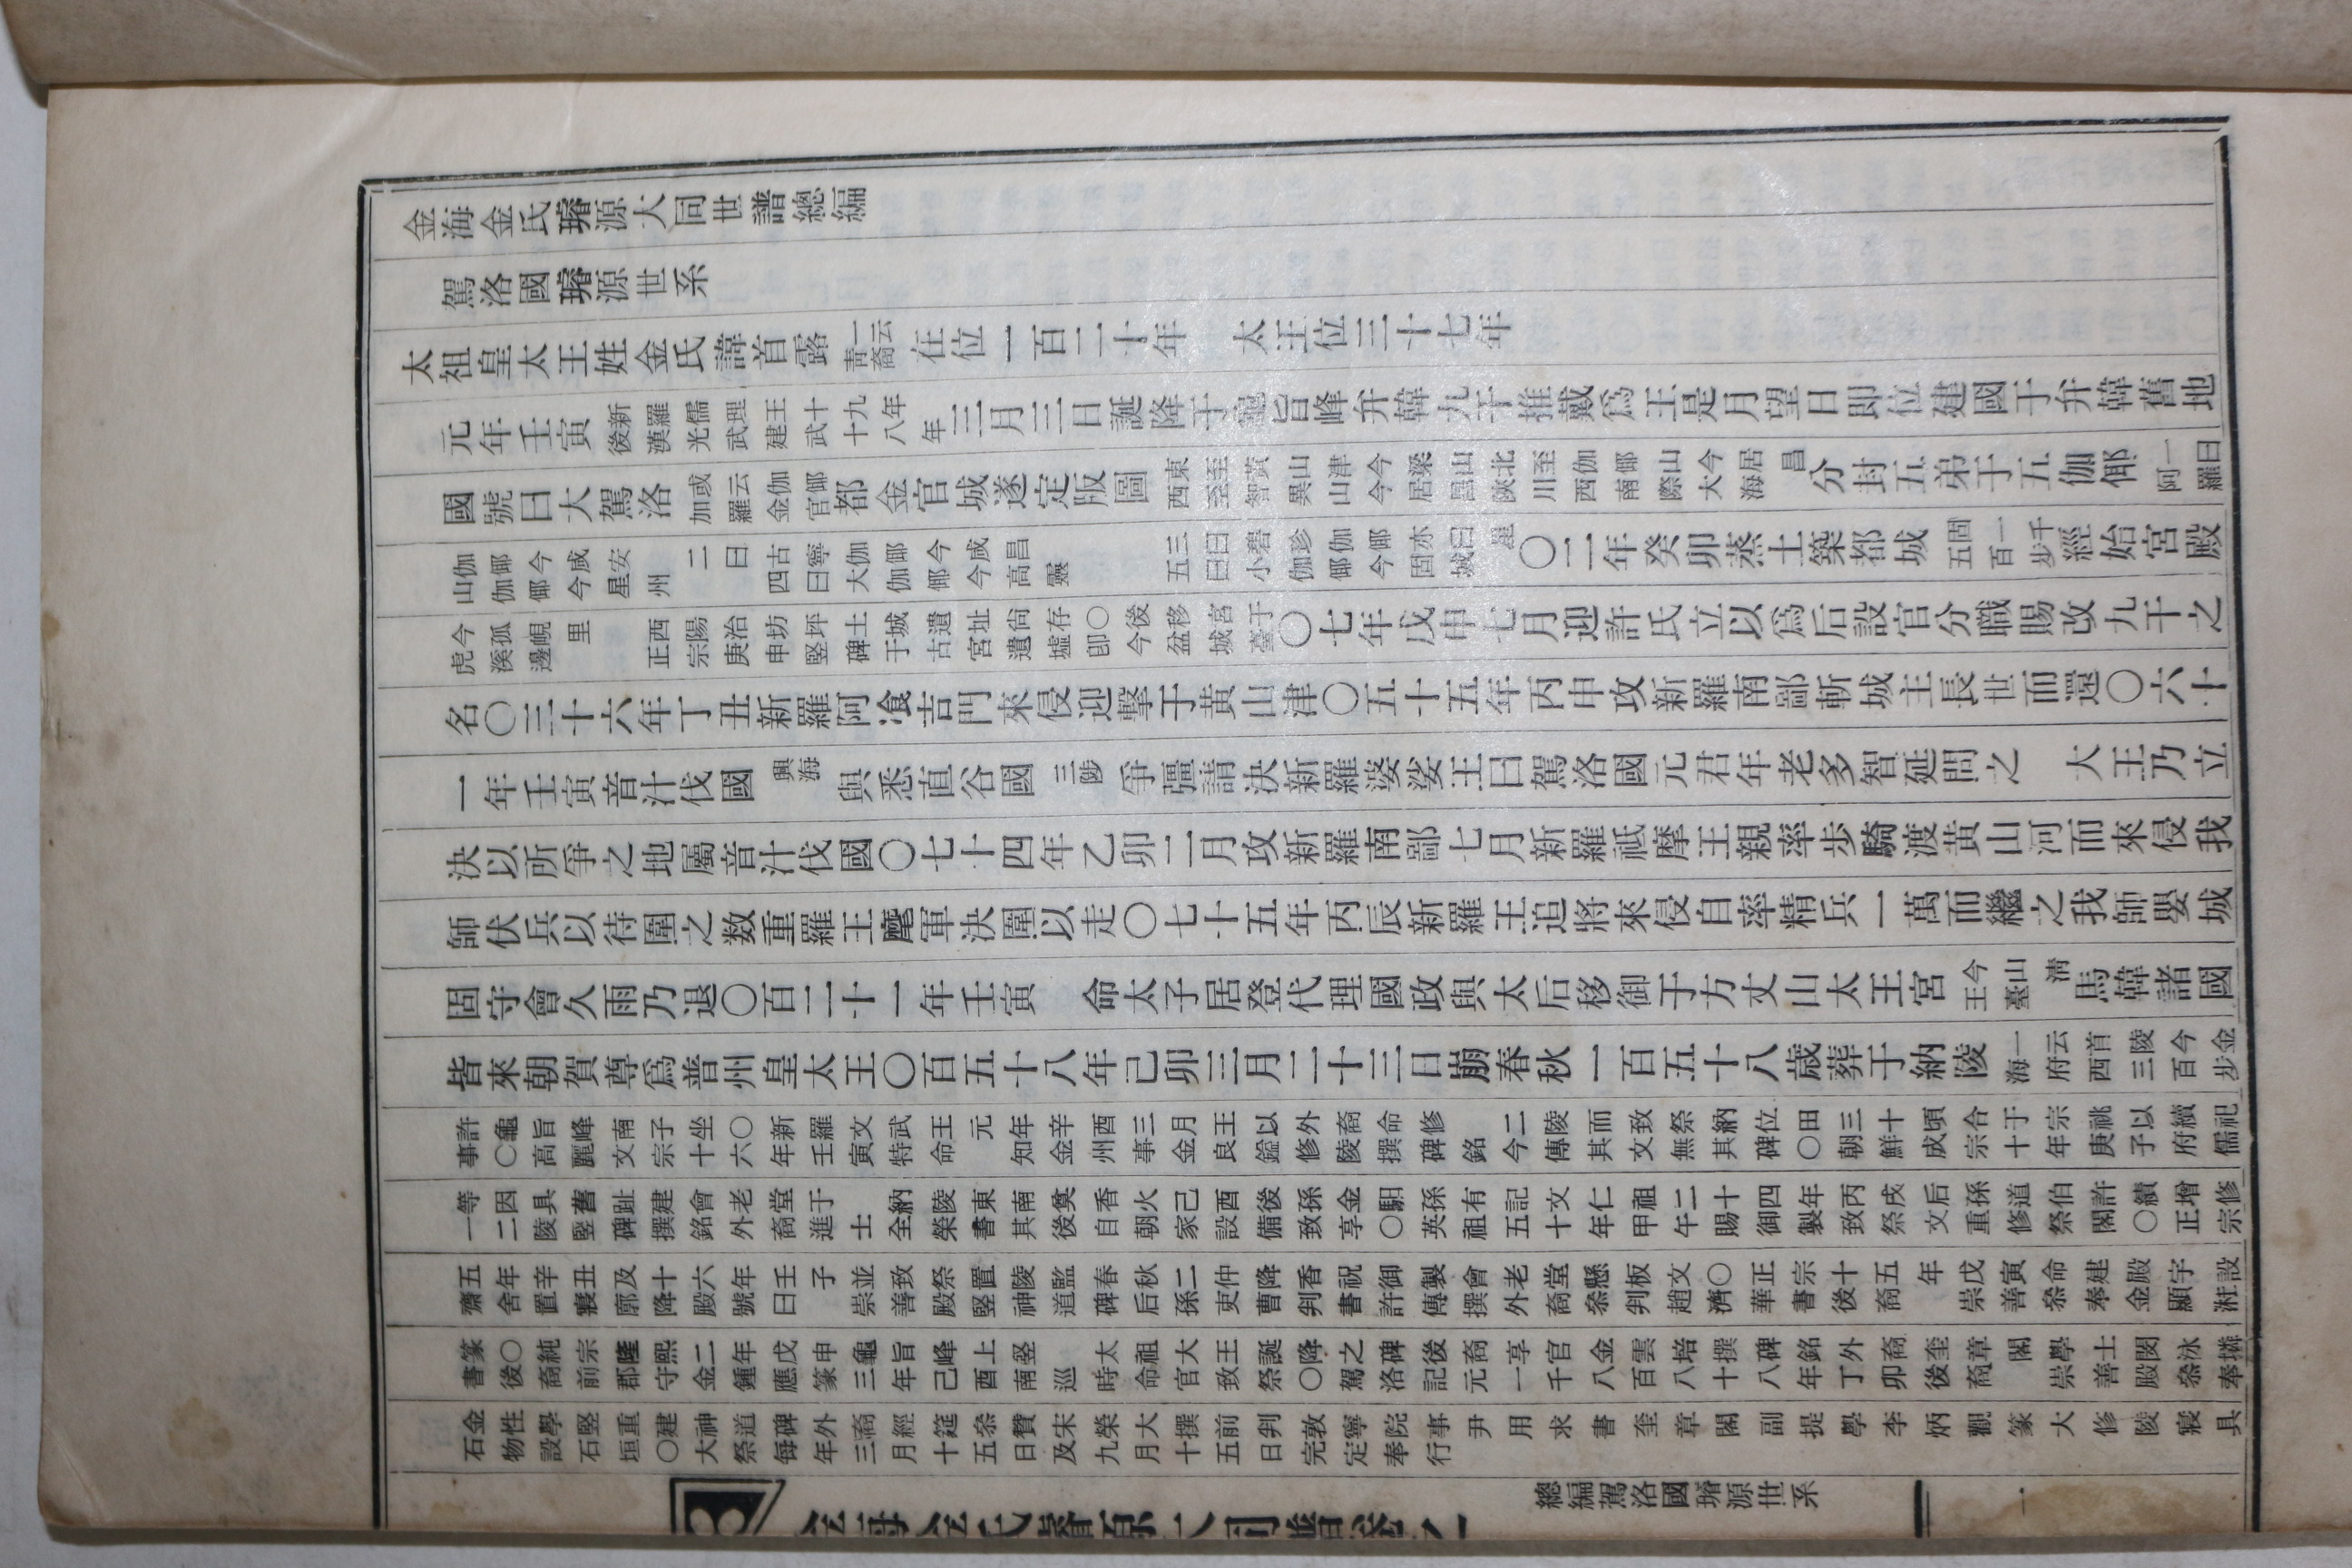 金海金氏璿源大同世譜總編
駕洛國璿源世系
太祖皇太王姓金氏諱首露一云青裔在位一百二十年 太王位三十七年
元年壬寅新羅儒理王十九年後漢光武建武十八年三月三日誕降于龜旨峰弁韓九干推戴爲王是月望日即位建國于弁韓舊地
國號曰大駕洛或云伽倻加羅金官都金官城遂定版圖東至黃山津今梁山北至伽倻山今居昌西至智異山今居昌陜川西南際大海分封五弟于五伽倻一曰阿羅
伽倻今咸安 二曰古寧伽倻今咸昌 三曰碧珍伽倻亦曰星山伽倻今星州 四曰大伽倻今高靈 五曰小伽倻今固城〇二年癸卯蒸土築都城固一千五百步經始宮殿
今孤峴里 西陽治坊坪土城遺址尙存〇後移宮于虎溪邊 正宗庚申竪碑于古宮遺墟卽今盆城臺〇七年戊申七月迎許氏立以爲后設官分職賜改九干之
名〇三十六年丁丑新羅阿飡吉門來侵迎擊于黃山津〇五十五年丙申攻新羅南鄙斬城主長世而還〇六十
一年壬寅音汁伐國興海與悉直谷國三陟爭彊請決新羅婆娑王曰駕洛國元君年老多智延問之 大王乃立
決以所爭之地屬音汁伐國〇七十四年乙卯二月攻新羅南鄙七月新羅祗摩王親率步騎渡黃山河而來侵我
師伏兵以待圍之数重羅王麾軍決圍以走〇七十五年丙辰新羅王追將來侵自率精兵一萬而繼之我師嬰城
固守會久雨乃退〇百二十一年壬寅 命太子居登代理國政與太后移御于方丈山太王宮今山淸王臺馬韓諸國
皆來朝賀尊爲普州皇太王〇百五十八年己卯三月二十三日崩春秋一百五十八歲葬于納陵一云首陵今金海府西三百步
許龜旨峰南子坐〇新羅文武王元年辛酉三月王以外裔命修二陵而致祭納位田三十頃合于宗祧以續祀
事〇高麗文宗十六年壬寅特命知金州事金良鎰修陵撰碑銘今傳其文無其碑〇朝鮮成宗十年庚子府儒
等因具舊趾建會老堂于納陵東南奠香火己酉後孫金馹孫有記文仁祖二十四年丙戌后孫道伯許績增修
一二陵竪碑撰銘外裔進士全榮書其後自朝家設備致享〇英祖五十年甲午賜御製致祭文重修祭閣〇正宗
五年辛丑及十六年壬子並致祭置陵監春秋二仲降香祝御製會老堂懸板文〇正宗十五年戊寅命建殿宇設
齋舍置寢廓降殿號曰崇善殿竪神道碑后孫吏曹判書許傳撰外裔叅判趙濟華書後裔崇善叅奉金顯
篆〇純宗隆熙二年戊申龜旨峰上竪太祖大王誕降之碑後裔享官金雲培撰碑銘外裔奎章閣學士閔泳璘
書後裔前郡守金鍾應篆三年己酉南巡時命官致祭〇駕洛記元一千八百八十八年丁卯後裔崇善殿叅奉
金性學竪重建神道碑外裔經筵叅贊宋榮大撰前判敦寧院事尹用求書奎章閣副提學李炳觀篆大修陵寢具
石物設石垣〇大祭每年三月十五日及九月十五日完定奉行
金海金氏璿源大同譜卷之一
總編駕洛國璿源世系 一